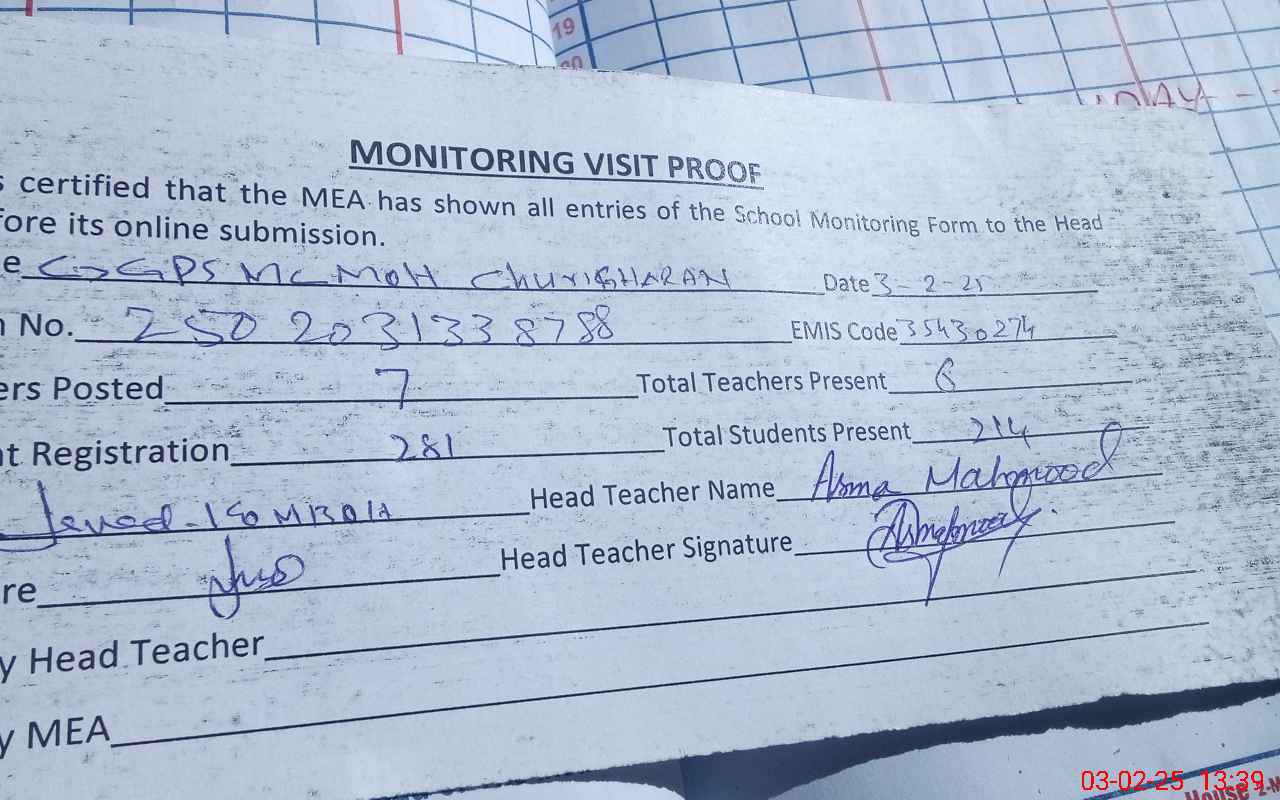 19
20
MONITORING VISIT PROOF
s certified that the MEA has shown all entries of the School Monitoring Form to the Head
fore its online submission.
e GGPS MC MOH ChuriGHARAN Date 3-2-25
n No. 250 2031338788 EMIS Code 35430274
ers Posted 7 Total Teachers Present 6
t Registration 281 Total Students Present 214
Javed Head Teacher Name Asma Mahmood
re Head Teacher Signature
y Head Teacher
y MEA
03-02-25 13:39
House 2-M